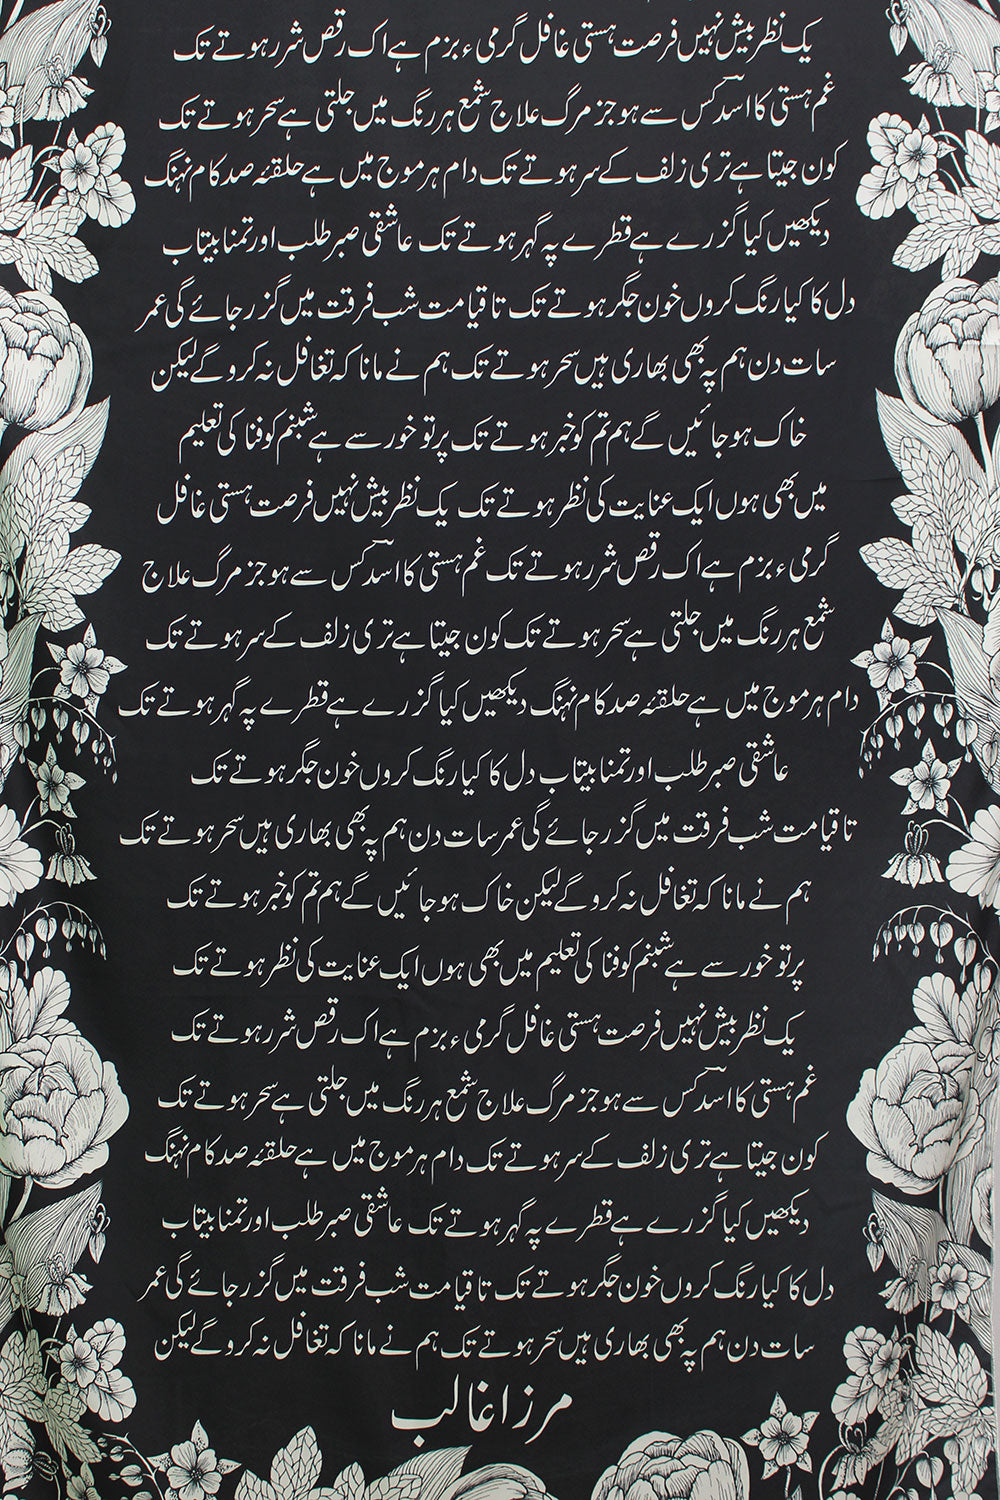 یک نظر بیش نہیں فرصت ہستی غافل گرمیء بزم ہے اک رقص شرر ہوتے تک
غم ہستی کا اسدؔ کس سے ہو جز مرگ علاج شمع ہر رنگ میں جلتی ہے سحر ہوتے تک
کون جیتا ہے تری زلف کے سر ہوتے تک دام ہر موج میں ہے حلقئہ صد کام نہنگ
دیکھیں کیا گزرے ہے قطرے پہ گہر ہوتے تک عاشقی صبر طلب اور تمنا بیتاب
دل کا کیا رنگ کروں خون جگر ہوتے تک تا قیامت شب فرقت میں گزر جائے گی عمر
سات دن ہم پہ بھی بھاری ہیں سحر ہوتے تک ہم نے مانا کہ تغافل نہ کرو گے لیکن
خاک ہو جائیں گے ہم تم کو خبر ہوتے تک پرتو خور سے ہے شبنم کو فنا کی تعلیم
میں بھی ہوں ایک عنایت کی نظر ہوتے تک یک نظر بیش نہیں فرصت ہستی غافل
گرمیء بزم ہے اک رقص شرر ہوتے تک غم ہستی کا اسدؔ کس سے ہو جز مرگ علاج
شمع ہر رنگ میں جلتی ہے سحر ہوتے تک کون جیتا ہے تری زلف کے سر ہوتے تک
دام ہر موج میں ہے حلقئہ صد کام نہنگ دیکھیں کیا گزرے ہے قطرے پہ گہر ہوتے تک
عاشقی صبر طلب اور تمنا بیتاب دل کا کیا رنگ کروں خون جگر ہوتے تک
تا قیامت شب فرقت میں گزر جائے گی عمر سات دن ہم پہ بھی بھاری ہیں سحر ہوتے تک
ہم نے مانا کہ تغافل نہ کرو گے لیکن خاک ہو جائیں گے ہم تم کو خبر ہوتے تک
پرتو خور سے ہے شبنم کو فنا کی تعلیم میں بھی ہوں ایک عنایت کی نظر ہوتے تک
یک نظر بیش نہیں فرصت ہستی غافل گرمیء بزم ہے اک رقص شرر ہوتے تک
غم ہستی کا اسدؔ کس سے ہو جز مرگ علاج شمع ہر رنگ میں جلتی ہے سحر ہوتے تک
کون جیتا ہے تری زلف کے سر ہوتے تک دام ہر موج میں ہے حلقئہ صد کام نہنگ
دیکھیں کیا گزرے ہے قطرے پہ گہر ہوتے تک عاشقی صبر طلب اور تمنا بیتاب
دل کا کیا رنگ کروں خون جگر ہوتے تک تا قیامت شب فرقت میں گزر جائے گی عمر
سات دن ہم پہ بھی بھاری ہیں سحر ہوتے تک ہم نے مانا کہ تغافل نہ کرو گے لیکن
مرزا غالب